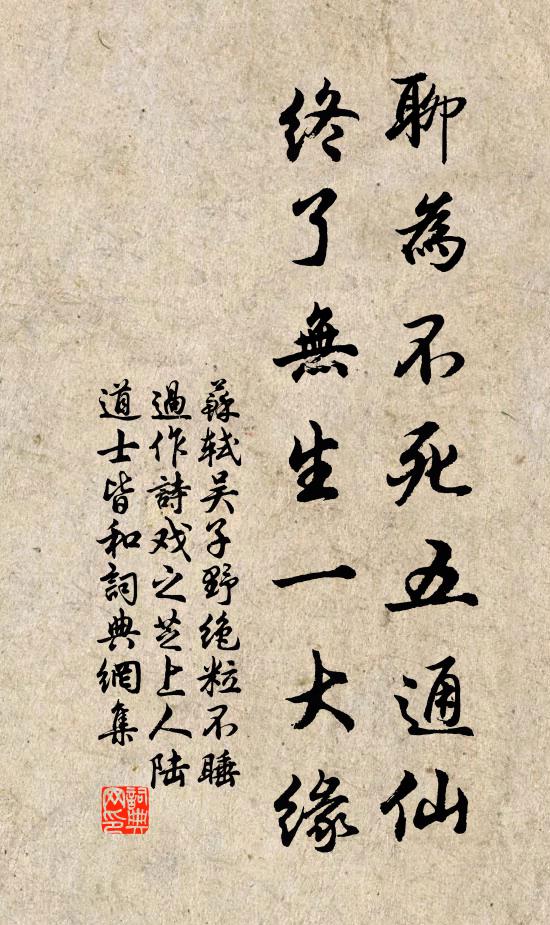 聊為不死五通仙
終了無生一大緣
蘇軾吴子野绝粒不睡
過作詩戏之芝上人陆
道士皆和詞典網集
詞典網印